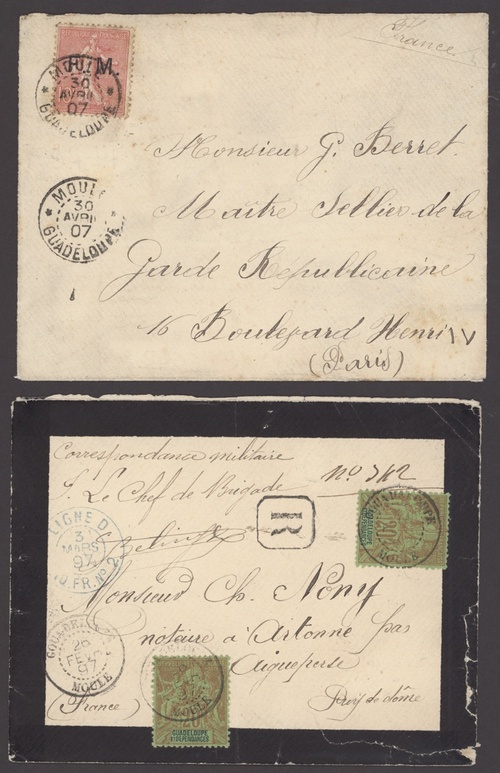 France
REPUBLIQUE FRANÇAISE
F. M.
MOULE
30
AVRIL
07
GUADELOUPE
MOULE
30
AVRIL
07
GUADELOUPE
Monsieur G. Berret.
Maître Sellier de la
Garde Républicaine
16 Boulevard Henri IV
(Paris)
Correspondance militaire
Le Chef de Brigade
No 342
R
LIGNE D
3
MARS
97
PAQ. FR. No 2
GUADELOUPE
MOULE
20
Monsieur Ch. Nony
notaire à Artonne par
Aigueperse
Puy de dôme
GUADELOUPE
FEVR
97
MOULE
(France)
MOULE
20
GUADELOUPE
ET DEPENDANCES